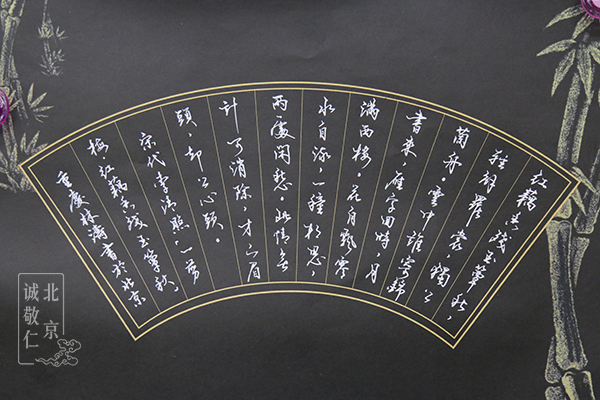 红藕香残玉簟秋，
轻解罗裳，獨上
蘭舟。雲中谁寄锦
書来，雁字回时，月
满西楼。花自飘零
水自流，一种相思，
两處闲愁。此情无
计可消除，才下眉
頭，却上心頭。
宋代李清照一剪
梅·红藕香残玉簟秋，
重慶林涛書於北京
北京
诚敬仁